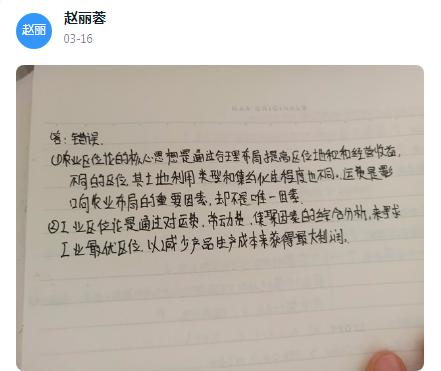 赵丽
赵丽蓉
03-16
答:错误.
①农业区位论的核心思想是通过合理布局提高区位地租和经营收益,
不同的区位.其土地利用类型和集约化生程度也不同。运费是影
响农业布局的重要因素,却不是唯一因素.
②工业区位论是通过对运费、劳动费、集聚因素的综合分析,来寻求
工业最优区位.以减少产品生产成本来获得最大利润.